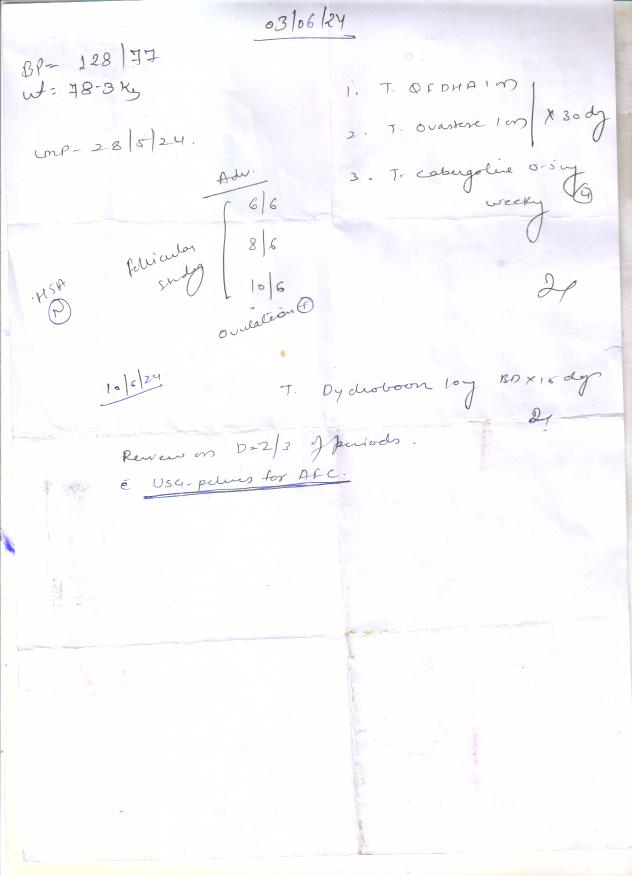 03/06/24
BP= 128/77
wt= 78.3 Kg
LMP- 28/5/24.
1. T. QFDHA 1 OD
2. T. Ovastere 1 OD
x 30 dy
3. T. Cabergoline 0.5mg
weekly (4)
Adv.
Follicular study
6/6
8/6
10/6
ovulation +
HSA
N
10/6/24
T. Dydroboon 10mg BD x 15 dys
Review on D-2/3 of periods.
c̄ USG-pelvis for AFC.